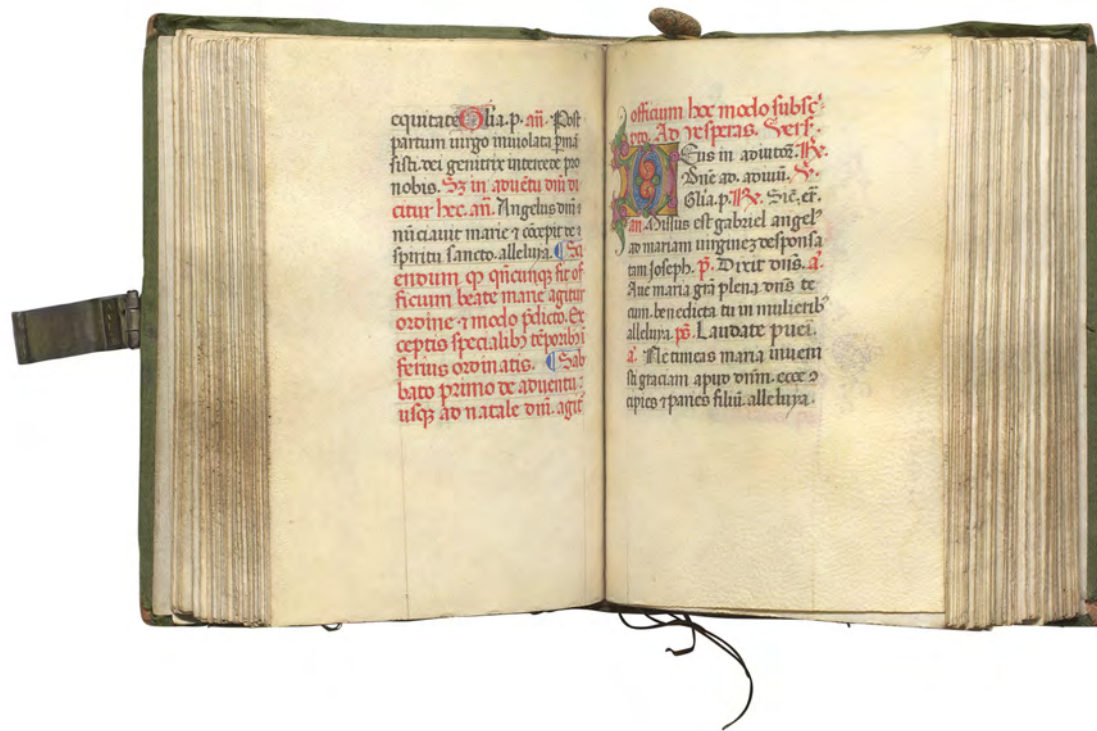 equitate Glia.p. añ. Post
partum uirgo inuiolata p̄mã
sisti. dei genitrix intercede pro
nobis. Sz in aduẽtu dñi di
citur hec. añ. Angelus dñi
nũciauit marie ⁊ cõcepit de
spiritu sancto. alleluya. ¶ Sci
endum ꝙ qñcunqꝫ fit of
ficium beate marie agitur
ordine ⁊ modo p̄dicto. Ex
ceptis specialibꝫ tẽporibꝫ
ferius ordinatis. ¶ Sab
bato primo de aduentu
usqꝫ ad natale dñi. agit᷑
officium hoc modo subsc᷑
pto. Ad vesperas. Vers.
Deus in adiutoꝝ. ℟.
Dñe ad. adiuũ. ℣.
Glia.p. ℟. Sic̃. er̃.
an. Missus est gabriel angelꝰ
ad mariam uirginez desponsa
tam joseph. p̃. Dixit dñs. ã.
Aue maria grã plena dñs te
cum. benedicta tu in mulieribꝰ
alleluya. ps̃. Laudate pueri.
ã. Ne timeas maria inueni
sti graciam apud dñm. ecce ꝯ
cipies ⁊ paries filiũ. alleluya.